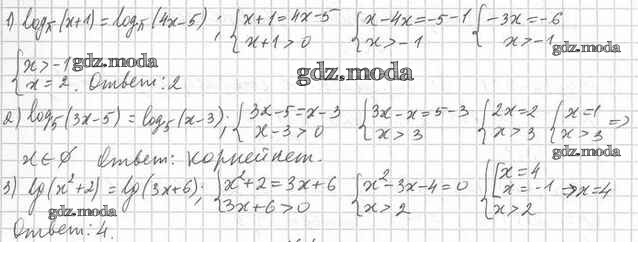 1) log_π(x+1) = log_π(4x-5); { x+1 = 4x-5 x+1 > 0 { x-4x = -5-1 x > -1 { -3x = -6 x > -1
gdz.moda
{ x > -1 x = 2. Ответ: 2
gdz.moda
gdz.moda
2) log_5(3x-5) = log_5(x-3); { 3x-5 = x-3 x-3 > 0 { 3x-x = 5-3 x > 3 { 2x = 2 x > 3 { x = 1 x > 3 =>
x ∈ ∅ Ответ: корней нет.
gdz.moda
3) lg(x²+2) = lg(3x+6); { x²+2 = 3x+6 3x+6 > 0 { x²-3x-4 = 0 x > 2 { [ x = 4 x = -1 x > 2 => x = 4
gdz.moda
Ответ: 4.